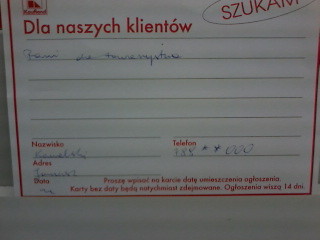 SZUKAM
Dla naszych klientów
Pani do towarzystwa
Nazwisko
Telefon
Kowalski
788 * * 000
Adres
Janusz
Data
Proszę wpisać na karcie datę umieszczenia ogłoszenia.
Karty bez daty będą natychmiast zdejmowane. Ogłoszenia wiszą 14 dni.